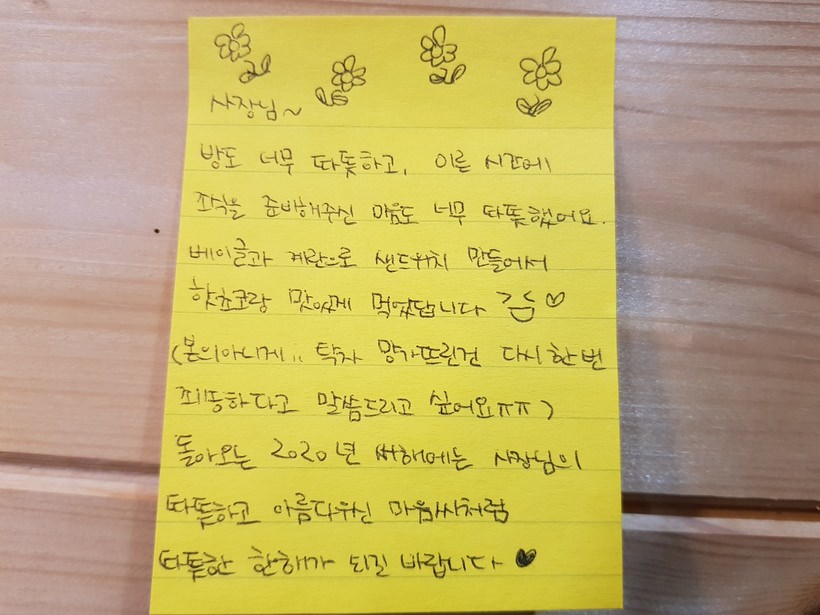 사장님~
방도 너무 따뜻하고, 이른 시간에
조식을 준비해주신 마음도 너무 따뜻했어요.
베이글과 계란으로 샌드위치 만들에서
핫초코랑 맛있게 먹었답니다 ♡
(본의아니게;; 탁자 망가뜨린건 다시 한번
죄송하다고 말씀드리고 싶어요ㅠㅠ)
돌아오는 2020년 새해에는 사장님의
따뜻하고 아름다우신 마음씨처럼
따뜻한 한해가 되길 바랍니다 ♥